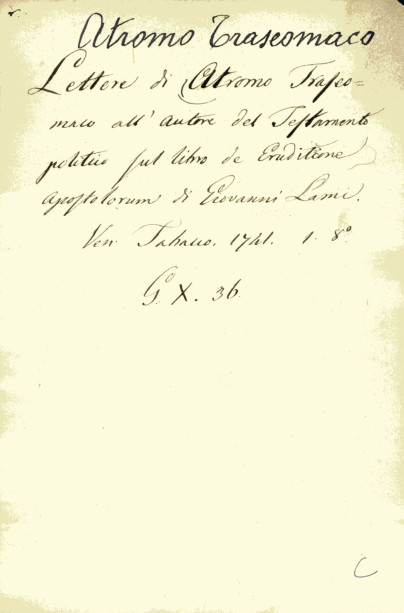 Atromo Traseomaco
Lettere di Atromo Traseo=
maco all' autore del Testamento
politico sul libro de Eruditione
Apostolorum di Giovanni Lami.
Ven. Tabacco. 1741. 1. 8°
G. X. 36
C